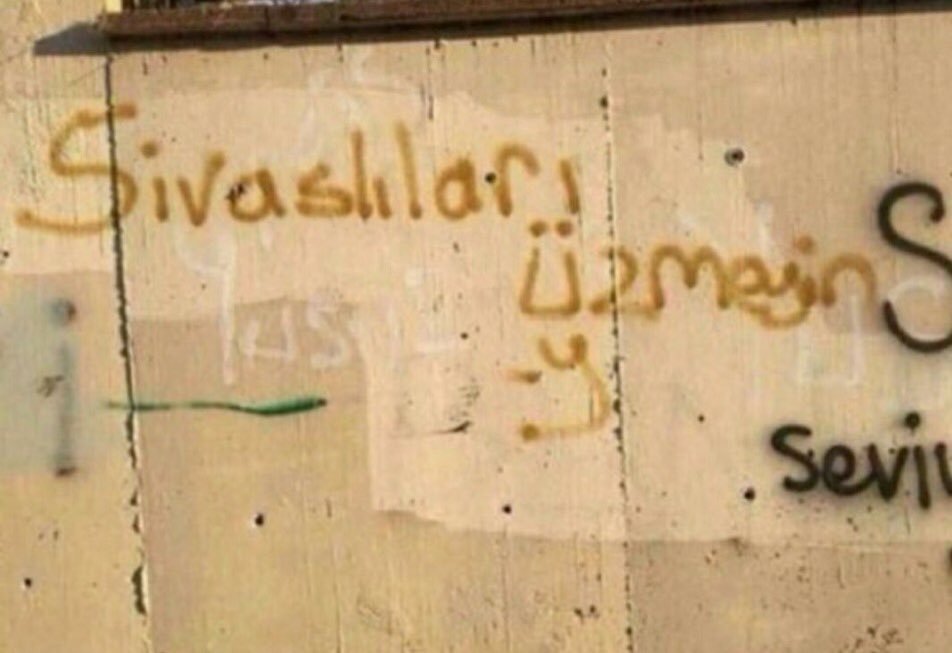 Sivaslıları
üzmeyin
-y
S
seviy